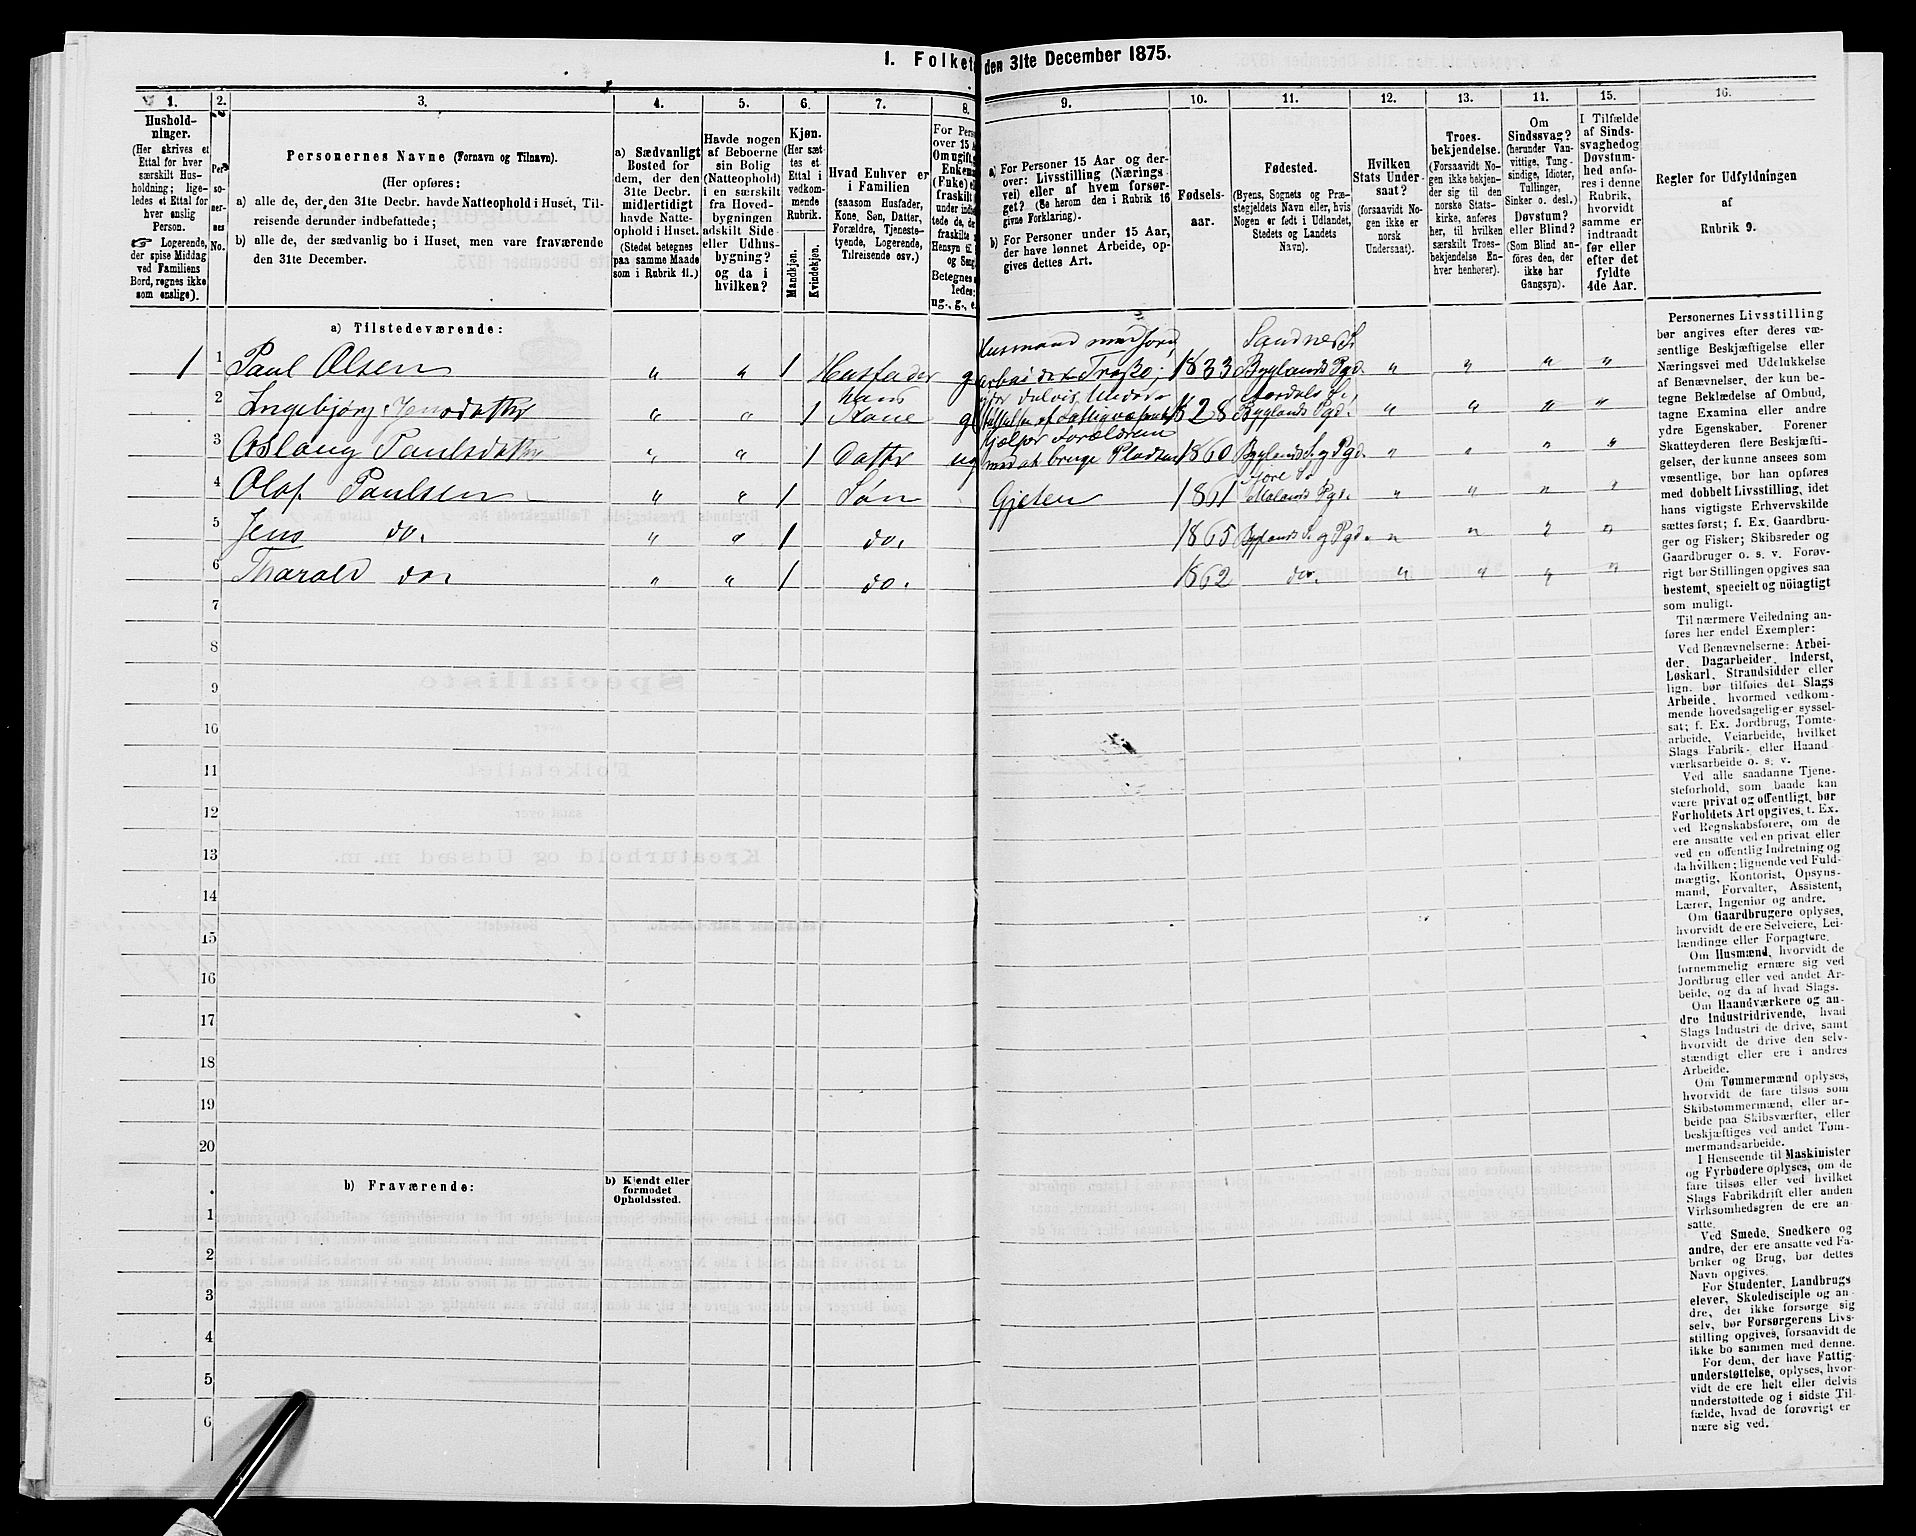 1. Folketæ
den 31te December 1875.
1.
2.
3.
4.
5.
6.
7.
8.
9.
10.
11.
12.
13.
14.
15.
16.
Hushold-
ninger.
(Her skrives et
Ettal for hver
særskilt Hus-
holdning; lige-
ledes et Ettal for
hver enslig
Person.
☞ Logerende,
der spise Middag
ved Familiens
Bord, regnes ikke
som enslige).
Per-
so-
ner-
nes
No.
Personernes Navne (Fornavn og Tilnavn).
(Her opføres:
a) alle de, der den 31te Decbr. havde Natteophold i Huset, Til-
reisende derunder indbefattede;
b) alle de, der sædvanlig bo i Huset, men vare fraværende
den 31te December.
a) Sædvanligt
Bosted for
dem, der den
31te Decbr.
midlertidigt
havde Natte-
ophold i Huset.
(Stedet betegnes
paa samme Maade
som i Rubrik 11.)
Havde nogen
af Beboerne
sin Bolig
(Natteophold)
i en særskilt
fra Hoved-
bygningen
adskilt Side-
eller Udhus-
bygning?
og da i
hvilken?
Kjøn.
(Her sæt-
tes et
Ettal i
vedkom-
mende
Rubrik.
Mandkjøn.
Kvindekjøn.
Hvad Enhver er
i Familien
(saasom Husfader,
Kone, Søn, Datter,
Forældre, Tjeneste-
tyende, Logerende,
Tilreisende osv.)
For Perso
over 15 A
Om ugift,
Enkema
(Enke) e
fraskilt
under indb
tede de, de
fraskilte
Hensyn ti
og Sen
Betegnes
ledes:
ug., g., e
a) For Personer 15 Aar og der-
over: Livsstilling (Nærings-
vei) eller af hvem forsør-
get? (Se herom den i Rubrik 16
givne Forklaring).
b) For Personer under 15 Aar,
der have lønnet Arbeide, op-
gives dettes Art.
Fødsels-
aar.
Fødested.
(Byens, Sognets og Præ-
stegjeldets Navn eller, hvis
Nogen er født i Udlandet,
Stedets og Landets
Navn).
Hvilken
Stats Under-
saat?
(forsaavidt No-
gen ikke er
norsk
Undersaat).
Troes-
bekjendelse.
(Forsaavidt No-
gen ikke bekjen-
der sig til den
norske Stats-
kirke, anføres
her, til hvilken
særskilt Troes-
bekjendelse En-
hver henhører).
Om
Sindssvag?
(herunder Van-
vittige, Tung-
sindige, Idioter,
Tullinger,
Sinker o. desl.)
Døvstum?
eller Blind?
(Som Blind an-
føres den, der
ikke har
Gangsyn).
I Tilfælde
af Sinds-
svaghed og
Døvstum-
hed anfø-
res i denne
Rubrik,
hvorvidt
samme er
indtraadt
før eller
efter det
fyldte
4de Aar.
Regler for Udfyldningen
af
Rubrik 9.
a) Tilstedeværende:
1 1 Paul Olsen " " 1 Husfader g Husmand med Jord, 1833 Sandnes S. Byglands Pgd. " " " "
2 Ingebjørg Jensdatter " " 1 hans Kone g 1828 Byglands Pgd. " " " "
3 Aslaug Paulsdatter " " 1 Datter ug hjælper Forældrene med at bruge Pladsen 1860 Byglands S. og Pgd. " " " "
4 Olaf Paulsen " " 1 Søn Gjeter 1861 Pgd. " " " "
5 Jens do. " " 1 do. 1865 Byglands S. og Pgd. " " " "
6 Tharald do. " " 1 do. 1862 do. " " " "
7
8
9
10
11
12
13
14
15
16
17
18
19
20
b) Fraværende:
b) Kjendt eller
formodet
Opholdssted.
1
2
3
4
5
6
Personernes Livsstilling
bør angives efter deres væ-
sentlige Beskjæftigelse eller
Næringsvei med Udelukkelse
af Benævnelser, der kun be-
tegne Beklædelse af Ombud,
tagne Examina eller andre
ydre Egenskaber. Forener
Skatteyderen flere Beskjæfti-
gelser, der kunne ansees som
væsentlige, bør han opføres
med dobbelt Livsstilling, idet
hans vigtigste Erhvervskilde
sættes først; f. Ex. Gaardbru-
ger og Fisker; Skibsreder og
Gaardbruger o. s. v. Forøv-
rigt bør Stillingen opgives saa
bestemt, specielt og nöiagtigt
som muligt.
Til nærmere Veiledning an-
føres her endel Exempler:
Ved Benævnelserne: Arbei-
der, Dagarbeider, Inderst,
Løskarl, Strandsidder eller
lign. bør tilføies det Slags
Arbeide, hvormed vedkom-
mende hovedsagelig er syssel-
sat; f. Ex. Jordbrug, Tomte-
arbeide, Veiarbeide, hvilket
Slags Fabrik- eller Haand-
værksarbeide o. s. v.
Ved alle saadanne Tjene-
steforhold, som baade kan
være privat og offentligt, bør
Forholdets Art opgives, t. Ex.
ved Regnskabsførere, om de
ere ansatte ved en privat eller
ved en offentlig Indretning og
da hvilken; lignende ved Fuld-
mægtig, Kontorist, Opsyns-
mand, Forvalter, Assistent,
Lærer, Ingeniør og andre.
Om Gaardbrugere oplyses,
hvorvidt de ere Selveiere, Lei-
lændinge eller Forpagtere.
Om Husmænd, hvorvidt de
fornemmelig ernære sig ved
Jordbrug eller ved andet Ar-
beide, og da af hvad Slags.
Om Haandværkere og an-
dre Industridrivende, hvad
Slags Industri de drive, samt
hvorvidt de drive den selv-
stændigt eller ere i andres
Arbeide.
Om Tømmermænd oplyses,
hvorvidt de fare tilsøs som
Skibstømmermænd, eller ar-
beide paa Skibsværfter, eller
beskjæftiges ved andet Tøm-
mermandsarbeide.
I Henseende til Maskinister
og Fyrbødere oplyses, om de
fare tilsøs eller ved hvilket
Slags Fabrikdrift eller anden
Virksomhedsgren de ere an-
satte.
Ved Smede, Snedkere og
andre, der ere ansatte ved Fa-
briker og Brug, bør dettes
Navn opgives.
For Studenter, Landbrugs-
elever, Skoledisciple og an-
dre, der ikke forsørge sig
selv, bør Forsørgerens Livs-
stilling opgives, forsaavidt de
ikke bo sammen med denne.
For dem, der have Fattig-
understøttelse, oplyses, hvor-
vidt de ere helt eller delvis
understøttede og i sidste Til-
fælde, hvad de forøvrigt er-
nære sig ved.